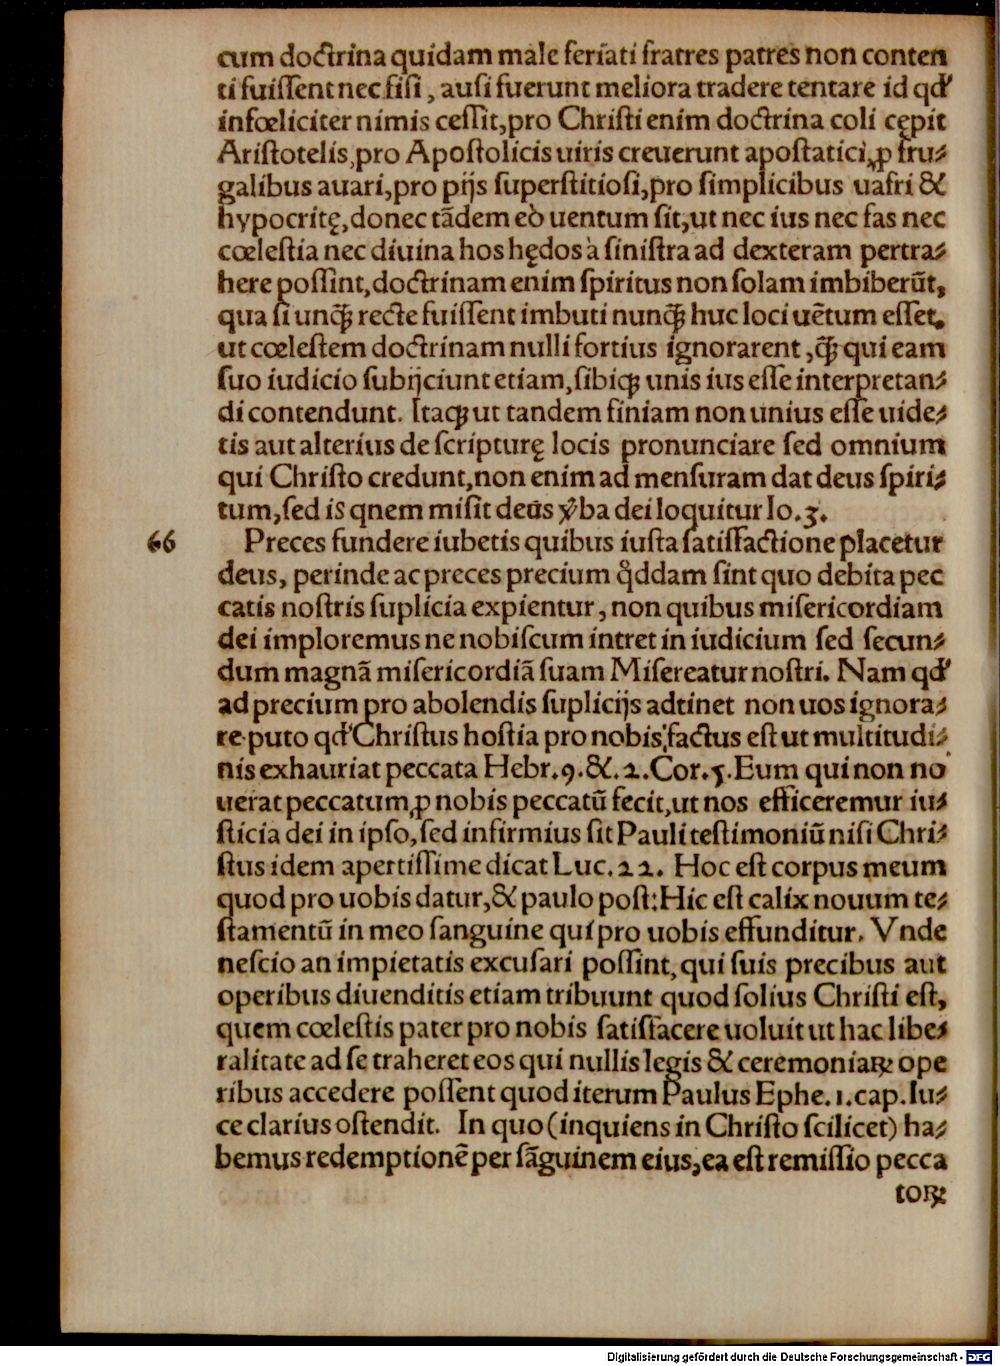 cum doctrina quidam male feriati fratres patres non conten
ti fuiſſent nec fiſi, auſi fuerunt meliora tradere tentare id qđ
infœliciter nimis ceſſit, pro Chriſti enim doctrina coli cępit
Ariſtotelis, pro Apoſtolicis uiris creuerunt apoſtatici, ꝓ fru⸗
galibus auari, pro pijs ſuperſtitioſi, pro ſimplicibus uafri &
hypocritę, donec tãdem eò uentum ſit, ut nec ius nec fas nec
cœleſtia nec diuina hos hędos à ſiniſtra ad dexteram pertra⸗
here poſſint, doctrinam enim ſpiritus non ſolam imbiberũt,
qua ſi unꝙ̃ recte fuiſſent imbuti nunꝙ̃ huc loci uẽtum eſſet.
ut cœleſtem doctrinam nulli fortius ignorarent, ꝙ̃ qui eam
ſuo iudicio ſubijciunt etiam, ſibiqꝫ unis ius eſſe interpretan⸗
di contendunt. Itaqꝫ ut tandem finiam non unius eſſe uide⸗
tis aut alterius de ſcripturę locis pronunciare ſed omnium
qui Chriſto credunt, non enim ad menſuram dat deus ſpiri⸗
tum, ſed is qnem miſit deus ꝟba dei loquitur Io. 3.
66 Preces fundere iubetis quibus iuſta ſatiſfactione placetur
deus, perinde ac preces precium qͦddam ſint quo debita pec
catis noſtris ſuplicia expientur, non quibus miſericordiam
dei imploremus ne nobiſcum intret in iudicium ſed ſecun⸗
dum magnã miſericordiã ſuam Miſereatur noſtri. Nam qđ
ad precium pro abolendis ſuplicijs adtinet non uos ignora⸗
re puto qđ Chriſtus hoſtia pro nobis factus eſt ut multitudi⸗
nis exhauriat peccata Hebr. 9. &. 2. Cor. 5. Eum qui non no
uerat peccatum, ꝓ nobis peccatũ fecit, ut nos efficeremur iu⸗
ſticia dei in ipſo, ſed infirmius ſit Pauli teſtimoniũ niſi Chri⸗
ſtus idem apertiſſime dicat Luc. 22. Hoc eſt corpus meum
quod pro uobis datur, & paulo poſt: Hic eſt calix nouum te⸗
ſtamentũ in meo ſanguine qui pro uobis effunditur. Vnde
neſcio an impietatis excuſari poſſint, qui ſuis precibus aut
operibus diuenditis etiam tribuunt quod ſolius Chriſti eſt,
quem cœleſtis pater pro nobis ſatiſfacere uoluit ut hac libe⸗
ralitate ad ſe traheret eos qui nullis legis & ceremoniaꝝ ope
ribus accedere poſſent quod iterum Paulus Ephe. 1. cap. lu⸗
ce clarius oſtendit. In quo (inquiens in Chriſto ſcilicet) ha⸗
bemus redemptionẽ per ſãguinem eius, ea eſt remiſſio pecca
toꝝ
Digitalisierung gefördert durch die Deutsche Forschungsgemeinschaft - DFG